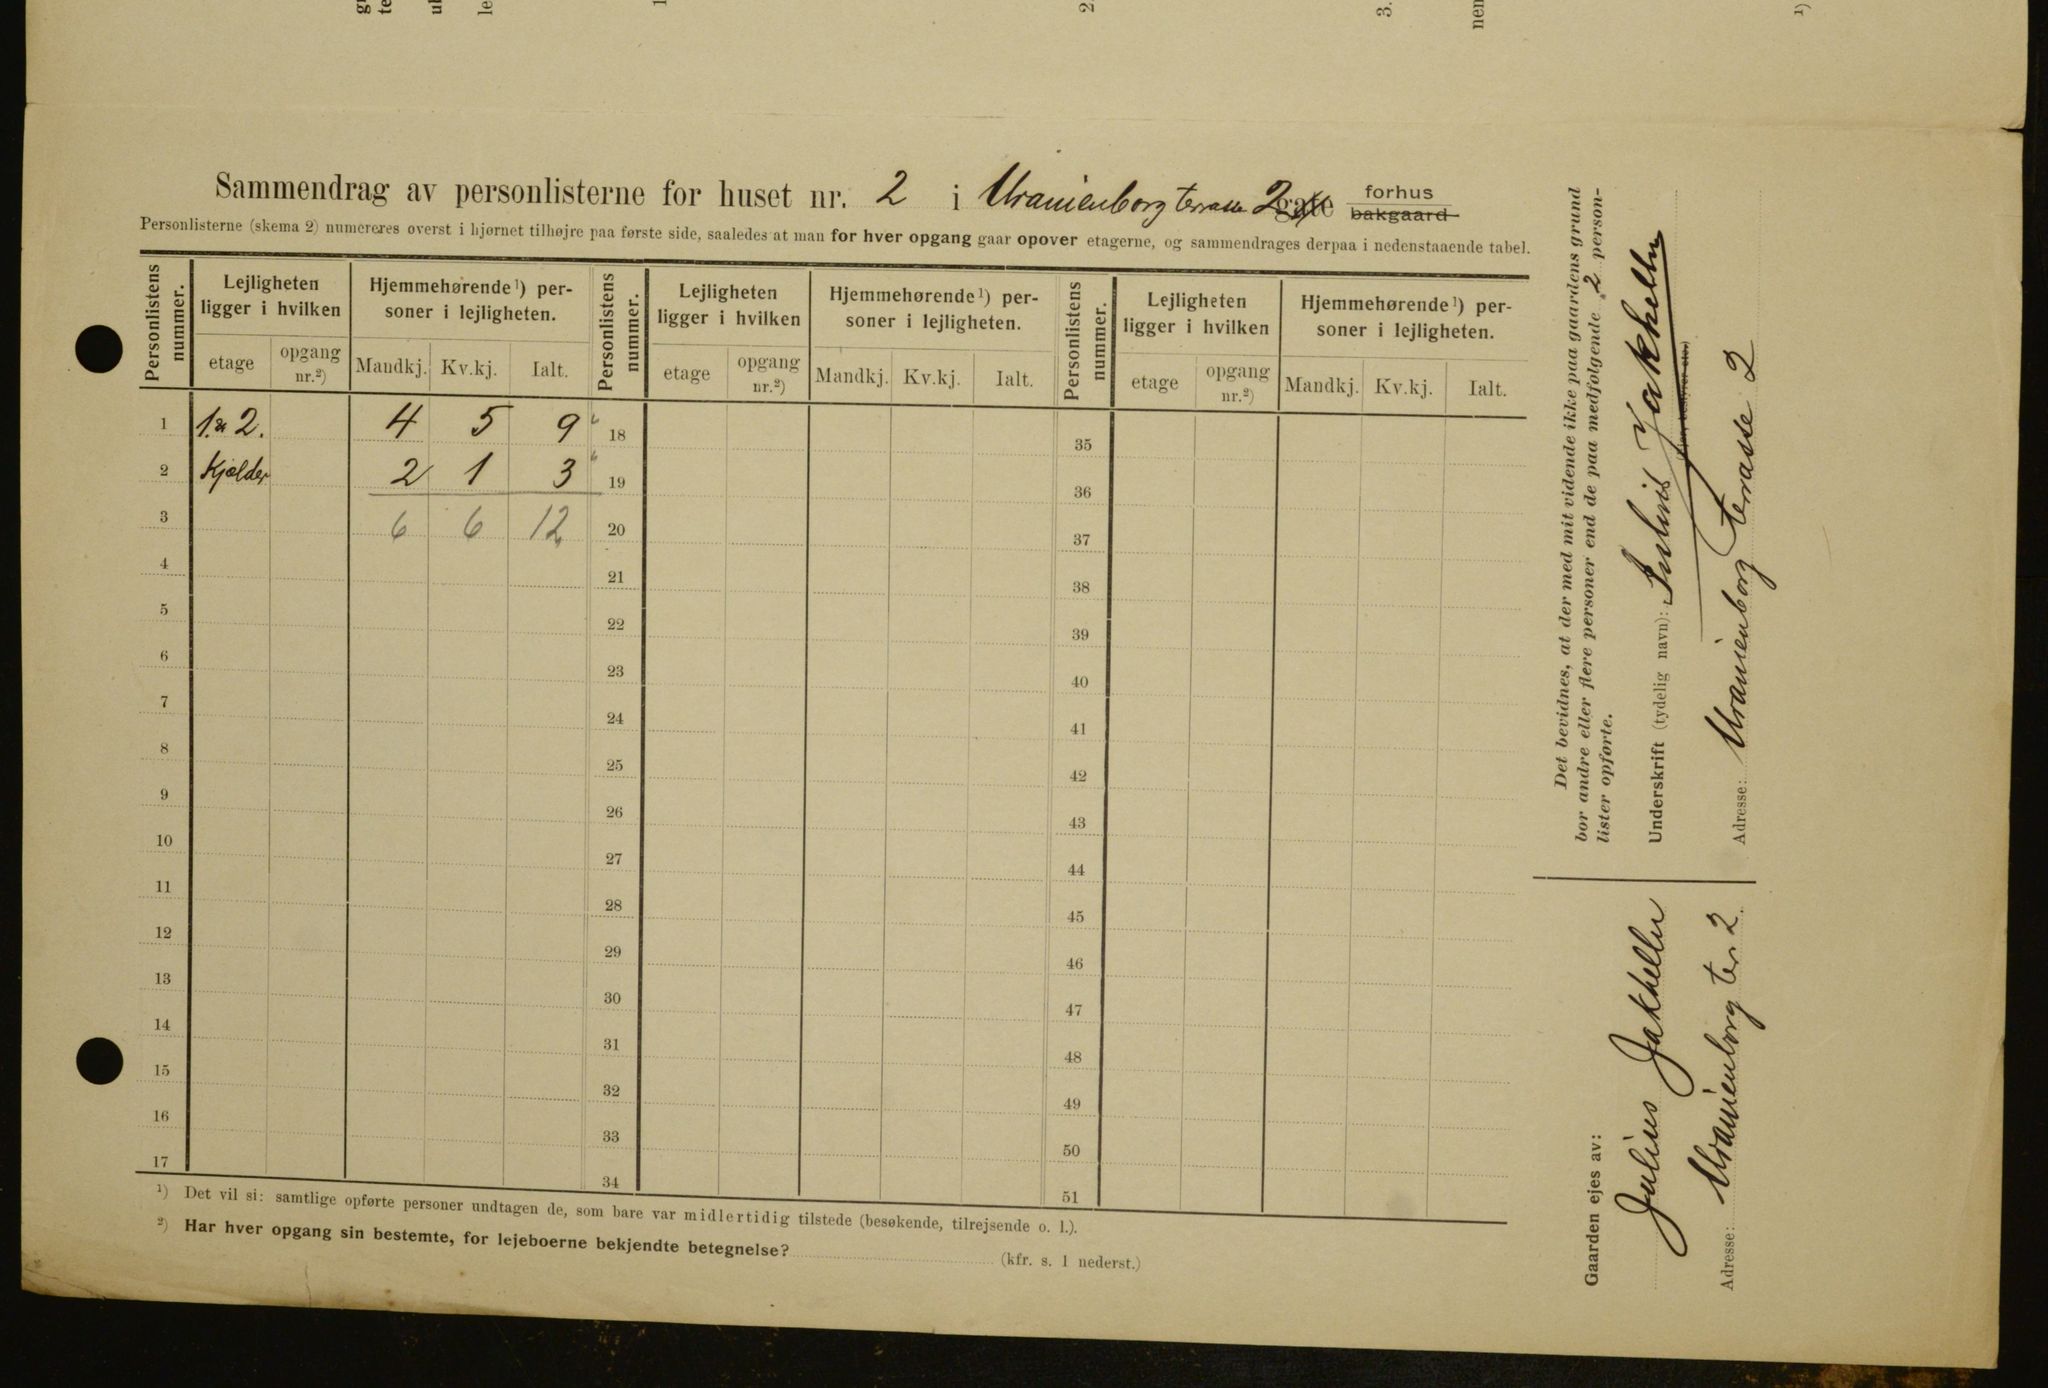 Sammendrag av personlisterne for huset nr. 2 i Uranienborg terrasse 2 gate forhus bakgaard
Personlisterne (skema 2) numereres øverst i hjørnet tilhøjre paa første side, saaledes at man for hver opgang gaar opover etagerne, og sammendrages derpaa i nedenstaaende tabel.
Personlistens nummer. Lejligheten ligger i hvilken Hjemmehørende¹) personer i lejligheten. Personlistens nummer. Lejligheten ligger i hvilken Hjemmehørende¹) personer i lejligheten. Personlistens nummer. Lejligheten ligger i hvilken Hjemmehørende¹) personer i lejligheten.
etage opgang nr.²) Mandkj. Kv.kj. Ialt. etage opgang nr.²) Mandkj. Kv.kj. Ialt. etage opgang nr.²) Mandkj. Kv.kj. Ialt.
1 1. 2. 4 5 9 18 35
2 Kjælder 2 1 3 19 36
3 6 6 12 20 37
4 21 38
5 22 39
6 23 40
7 24 41
8 25 42
9 26 43
10 27 44
11 28 45
12 29 46
13 30 47
14 31 48
15 32 49
16 33 50
17 34 51
¹) Det vil si: samtlige opførte personer undtagen de, som bare var midlertidig tilstede (besøkende, tilrejsende o. l.).
²) Har hver opgang sin bestemte, for lejeboerne bekjendte betegnelse? (kfr. s. 1 nederst.)
Det bevidnes, at der med mit vidende ikke paa gaardens grund
bor andre eller flere personer end de paa medfølgende 2 person-
lister opførte.
Underskrift (tydelig navn): Julius Jakhelln
Adresse: Uranienborg terrasse 2
Gaarden ejes av:
Julius Jakhelln
Adresse: Uranienborg ter 2.